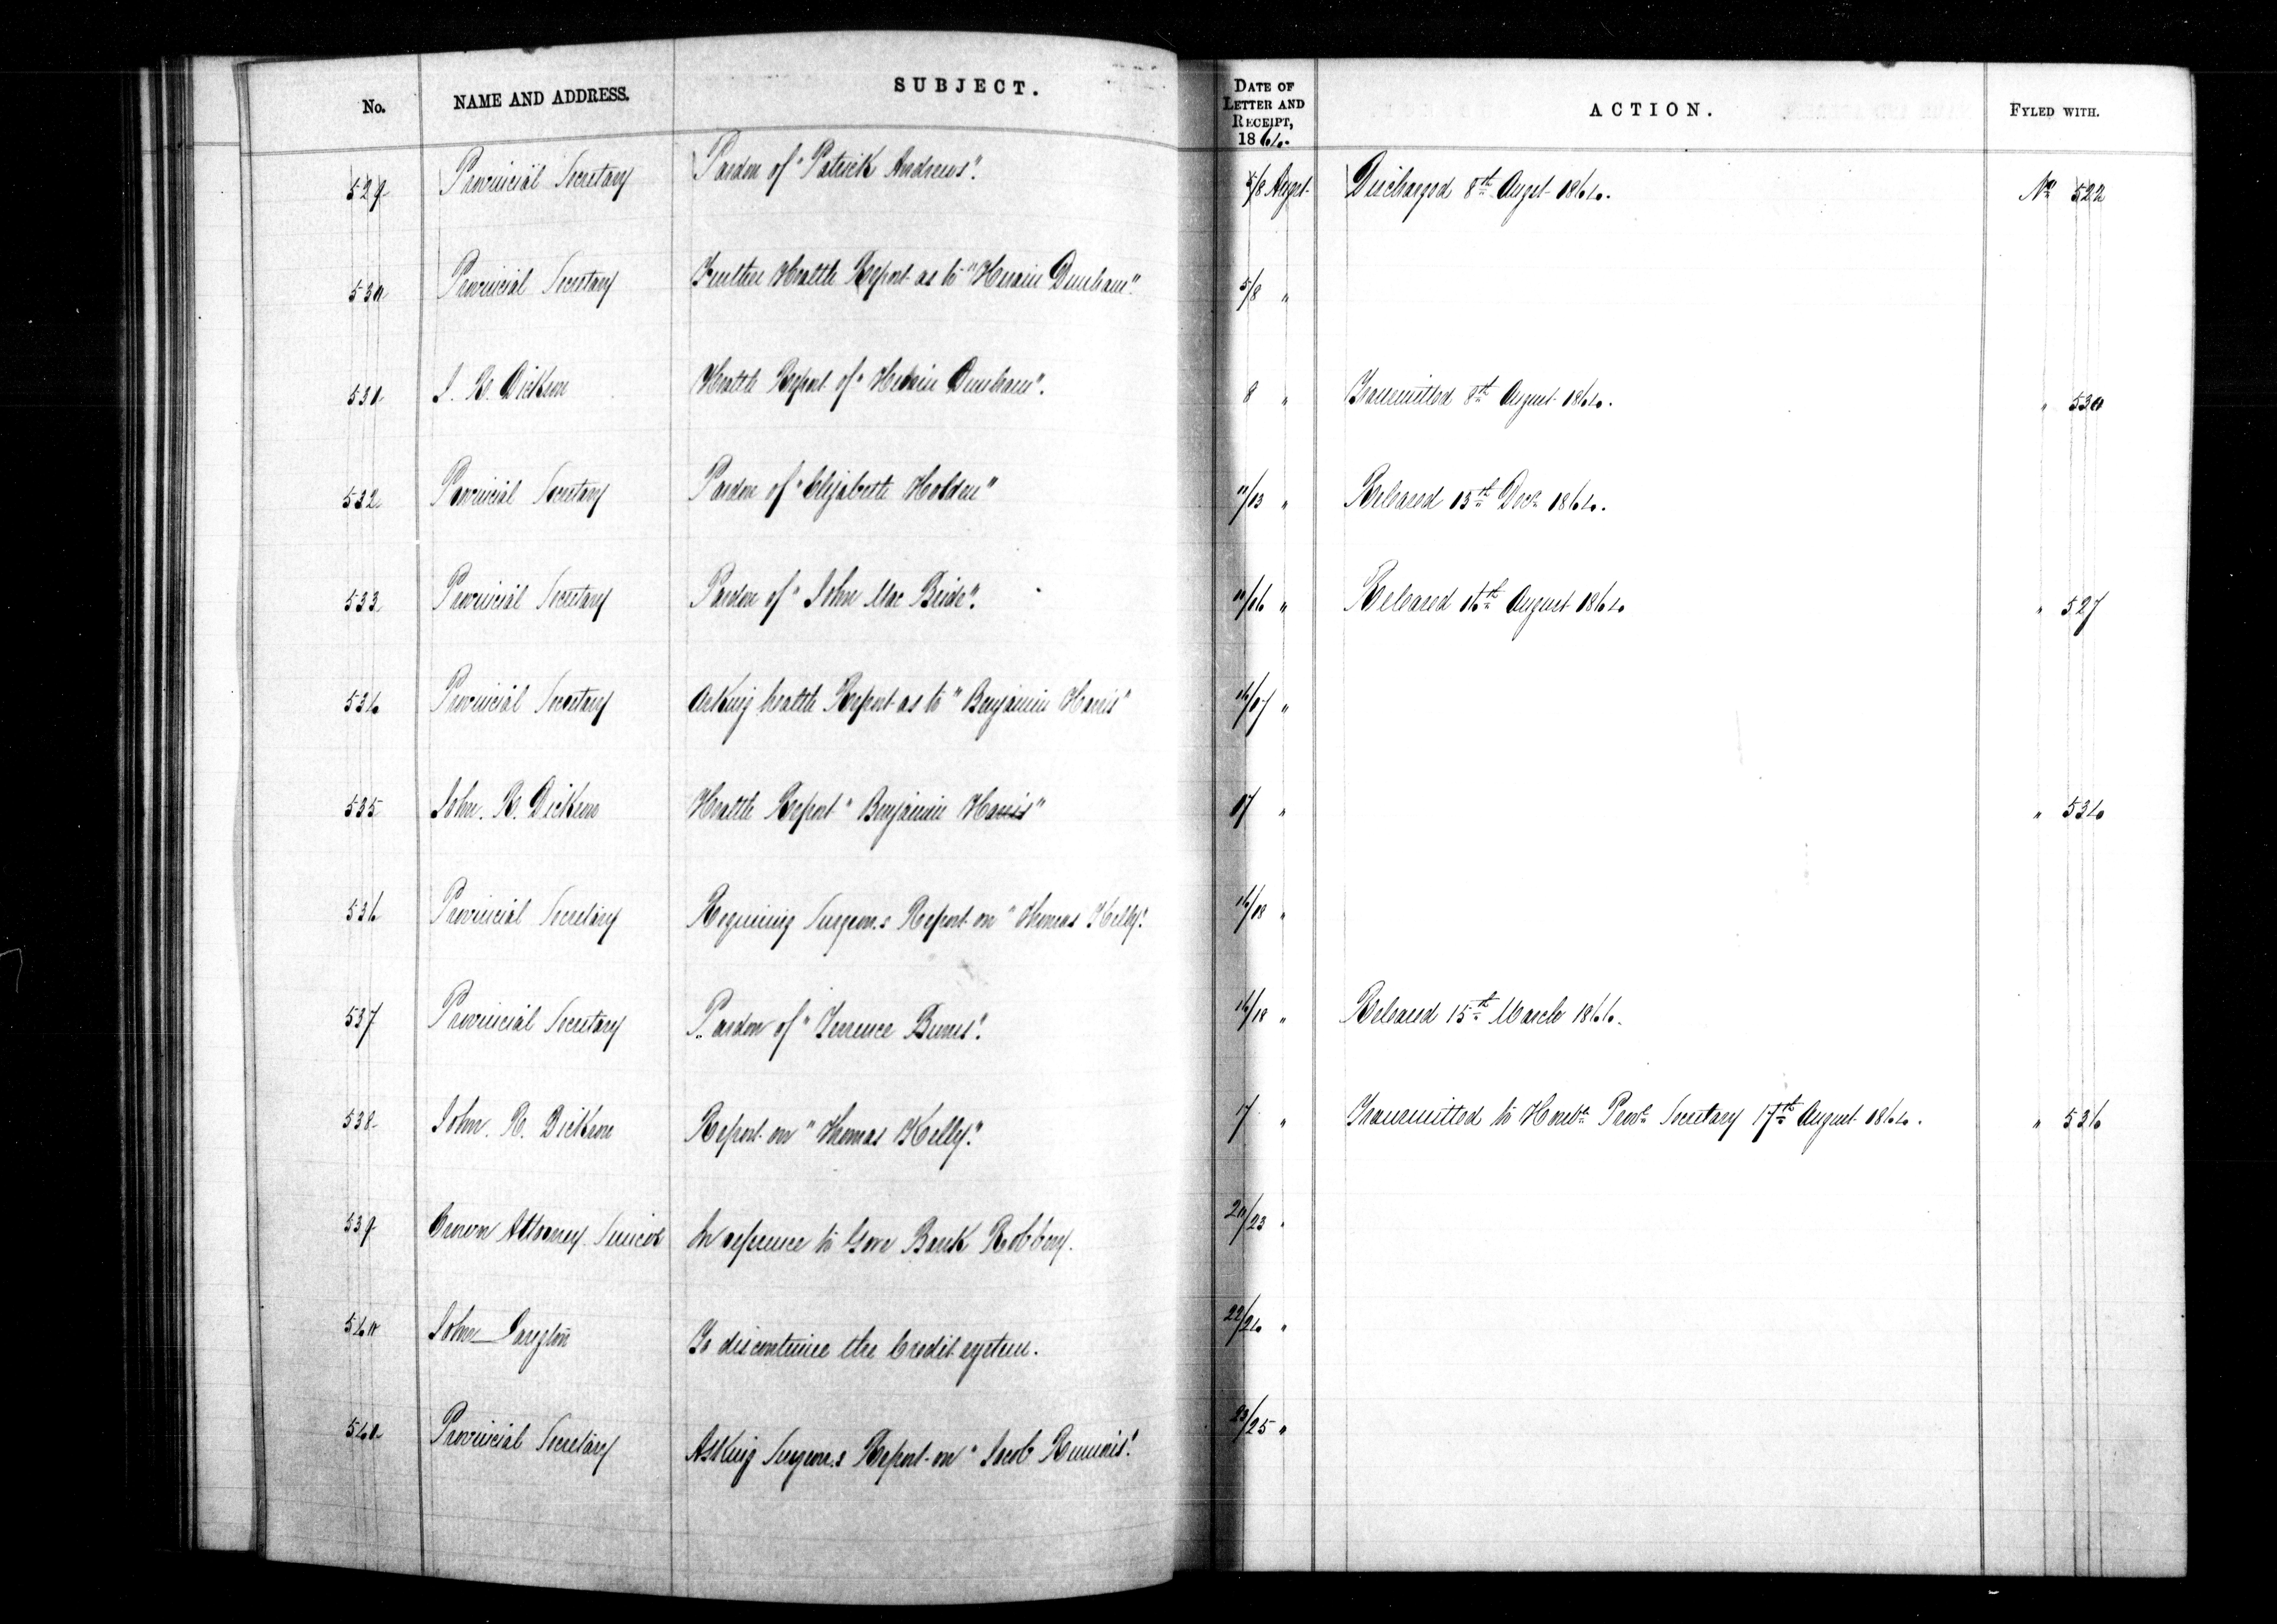 No. NAME AND ADDRESS. SUBJECT. DATE OF LETTER AND RECEIPT, 1864. ACTION. FYLED WITH.
529 Provincial Secretary Pardon of "Patrick Andrews". 5/8 Augst. Discharged 8th Augst 1864. No 522
530 Provincial Secretary Further Health Report as to "Hiram Dunham". 5/8 "
531 J. R. Dickson Health Report of "Hiram Dunham". 8 " Transmitted 8th August 1864. " 530
532 Provincial Secretary Pardon of "Elizabeth Holden" 11/13 " Released 13th Decr 1864.
533 Provincial Secretary Pardon of "John Mac Bride". 11/16 " Released 16th August 1864 " 527
534 Provincial Secretary Asking health Report as to "Benjamin Harris" 16/17 "
535 John. R. Dickson Health Report "Benjamin Harris" 17 " " 534
536 Provincial Secretary Requiring Surgeon.s Report on "Thomas Kelly". 16/18 "
537 Provincial Secretary Pardon of "Terrence Burns". 16/18 " Released 15th March 1866.
538 John. R. Dickson Report on "Thomas Kelly". 17 " Transmitted to Honble Provl Secretary 17th August 1864. " 536
539 Crown Attorney Simcoe In reference to Gore Bank Robbery. 20/23 "
540 John Langton To discontinue the Credit system. 22/24 "
541 Provincial Secretary Asking Surgeon.s Report on "Jacob 23/25 "